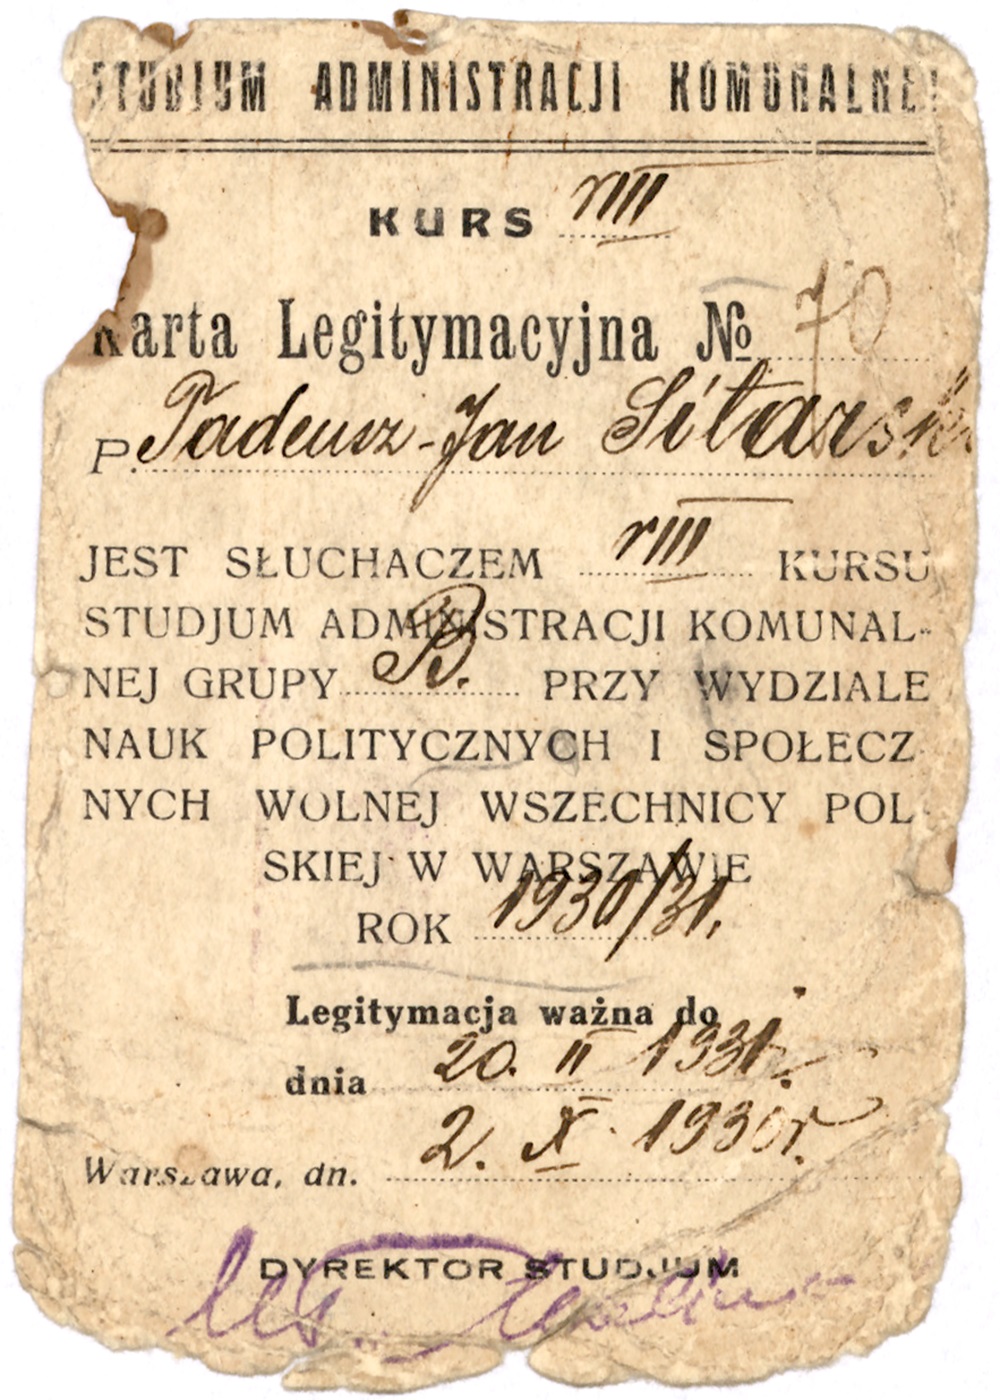 STUDJUM ADMINISTRACJI KOMUNALNEJ
KURS VIII
Karta Legitymacyjna № 70
P. Tadeusz-Jan Sitarski
JEST SŁUCHACZEM VIII KURSU
STUDJUM ADMINISTRACJI KOMUNAL-
NEJ GRUPY B. PRZY WYDZIALE
NAUK POLITYCZNYCH I SPOŁECZ
NYCH WOLNEJ WSZECHNICY POL-
SKIEJ W WARSZAWIE
ROK 1930/31.
Legitymacja ważna do
dnia 20. II 1931 r.
Warszawa, dn. 2. X. 1930 r.
DYREKTOR STUDJUM